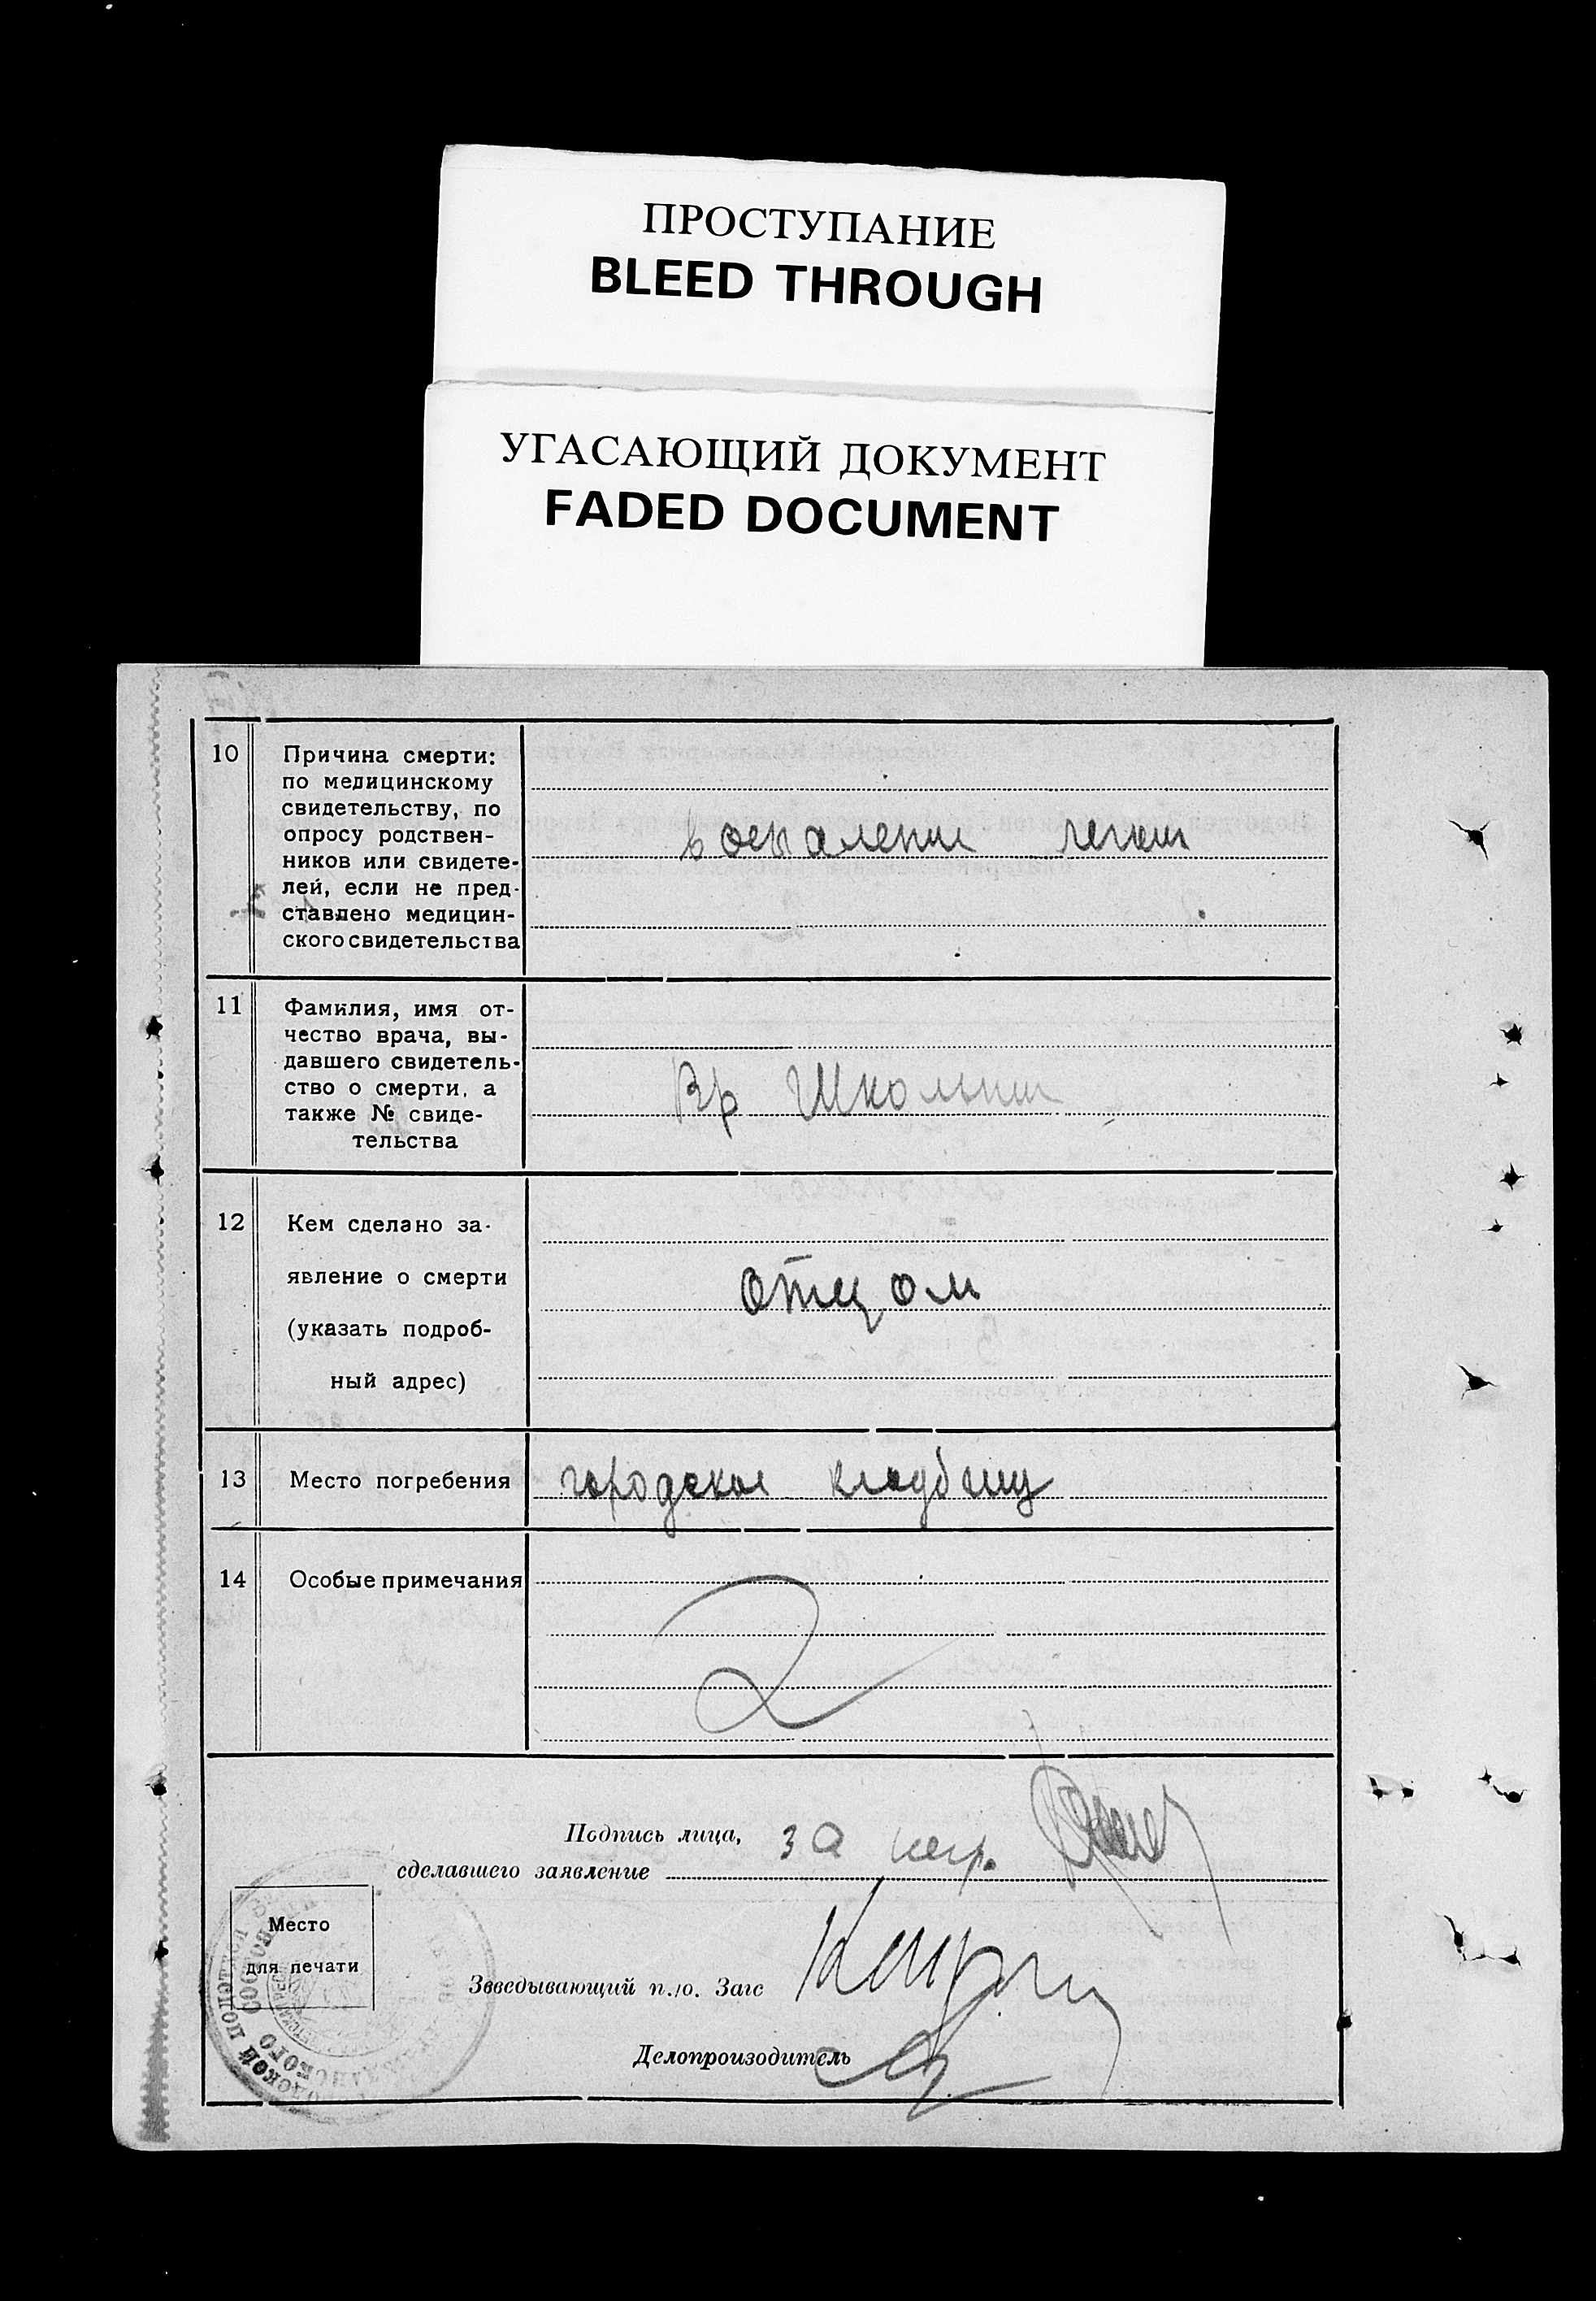 ПРОСТУПАНИЕ
BLEED THROUGH
УГАСАЮЩИЙ ДОКУМЕНТ
FADED DOCUMENT
10
Причина смерти:
по медицинскому
свидетельству, по
опросу родствен-
ников или свидете-
лей, если не пред-
ставлено медицин-
ского свидетельства
воспаление легких
11
Фамилия, имя от-
чество врача, вы-
давшего свидетель-
ство о смерти, а
также № свиде-
тельства
Вр Школьник
12
Кем сделано за-
явление о смерти
(указать подроб-
ный адрес)
отцом
13
Место погребения
городское кладбищ
14
Особые примечания
Подпись лица,
сделавшего заявление
за негр.
Место
для печати
Зведывающий п./о. Загс
Делопроизодитель